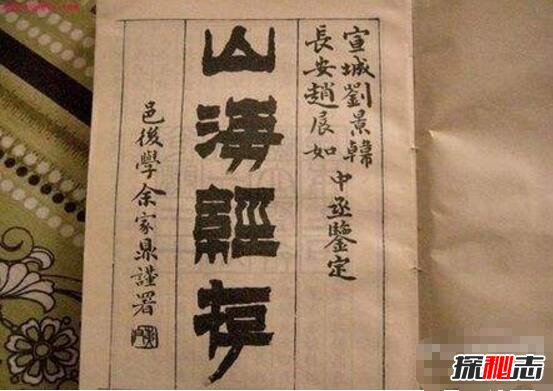 宣城劉景韓
長安趙展如
中丞鑒定
山海經存
邑後學余家鼎謹署
探秘志